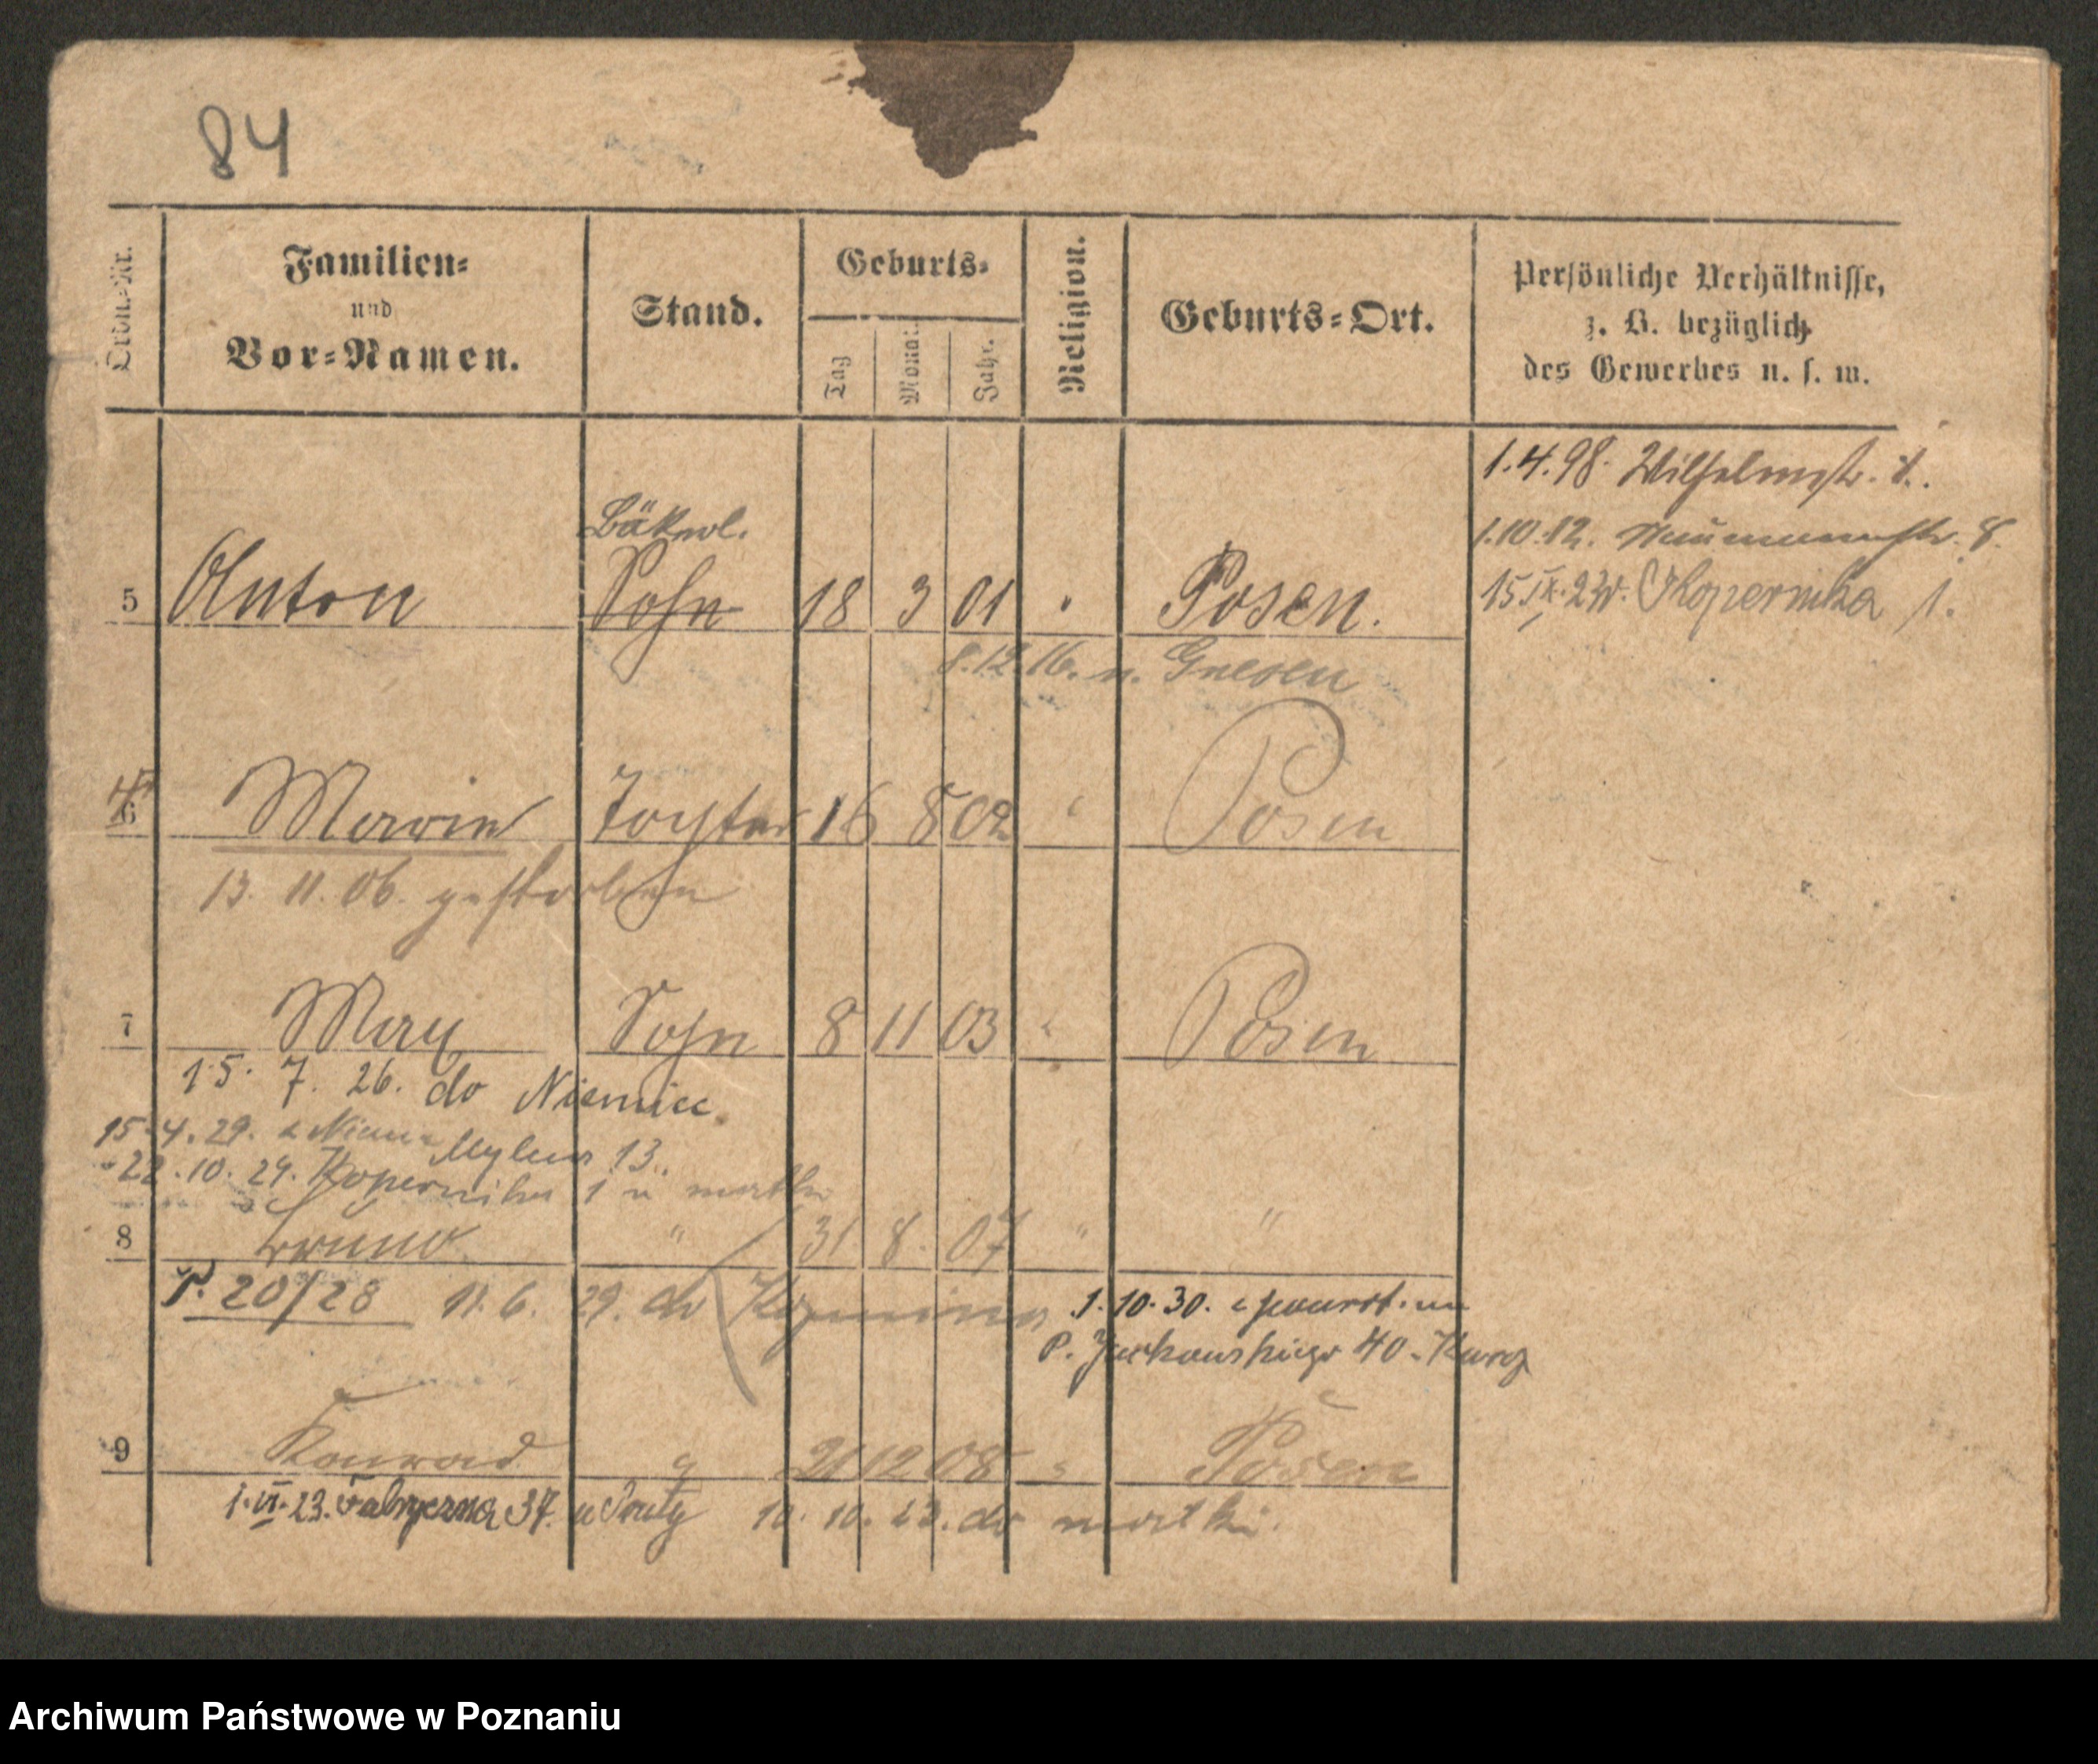 84
Ordn.-Nr.
Familien-
und
Vor-Namen.
Stand.
Geburts-
Tag
Monat
Jahr.
Religion.
Geburts-Ort.
Persönliche Verhältnisse,
z. B. bezüglich
des Gewerbes u. s. w.
1.4.98. Wilhelmstr. 1.
1.10.12. Naumannstr. 8.
15.IX.23. Kopernika 1.
5 Anton Sohn 18 3 01 " Posen.
8.12.16. n. Gnesen
6 Marie Tochter 16 8 02 " Posen
13. 11. 06. gestorben
7 Max Sohn 8 11 03 " Posen
15. 7. 26. do Niemiec.
15.4.29. z Niem 13.
22.10.29. Kopernika 1 u matki
8 Bruno " 31 8. 07 " "
20/28 11.6. 29. do
1.10.30. z powrot. na
P. Jackowskiego 40
9 Konrad " 21 12 08 " Posen
1.VI.23. Fabryczna 37. u 10. 10. 23. do matki.
Archiwum Państwowe w Poznaniu